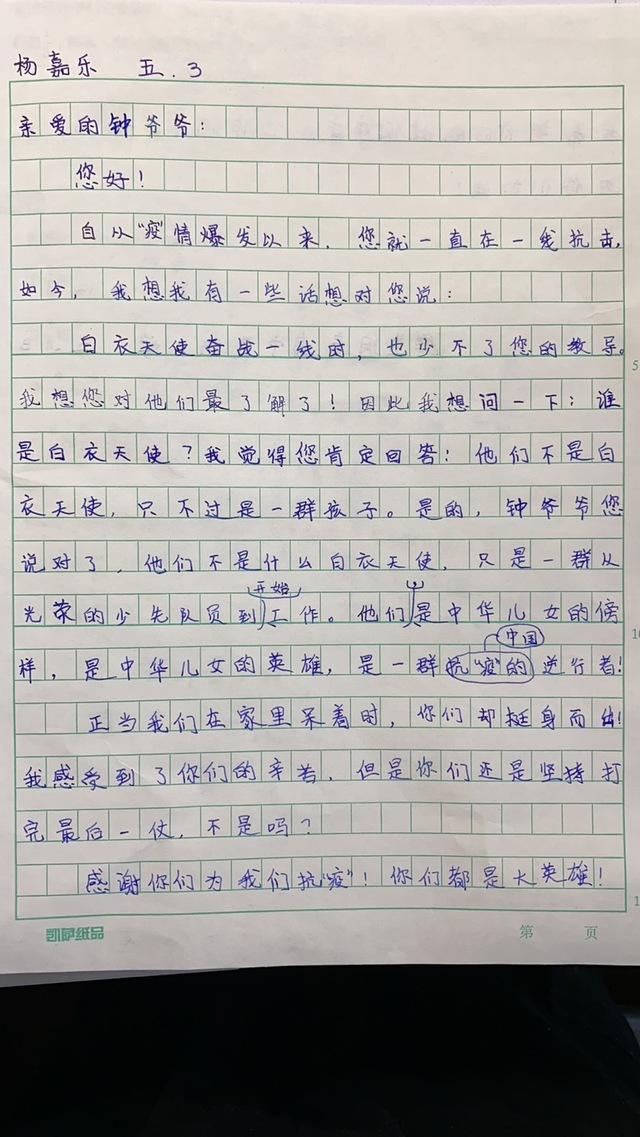 杨嘉乐 五.3
亲爱的钟爷爷:
您好!
自从“疫”情爆发以来,您就一直在一线抗击,
如今,我想我有一些话想对您说:
白衣天使奋战一线时,也少不了您的教导。
我想您对他们最了解了!因此我想问一下:谁
是白衣天使?我觉得您肯定回答:他们不是白
衣天使,只不过是一群孩子。是的,钟爷爷您
说对了,他们不是什么白衣天使,只是一群从
开始
光荣的少先队员到工作。他们是中华儿女的傍
中国
样,是中华儿女的英雄,是一群抗“疫”的逆行者!
正当我们在家里呆着时,你们却挺身而出!
我感受到了你们的辛苦,但是你们还是坚持打
完最后一仗,不是吗?
感谢你们为我们抗“疫”!你们都是大英雄!
凯萨纸品 第 页
5